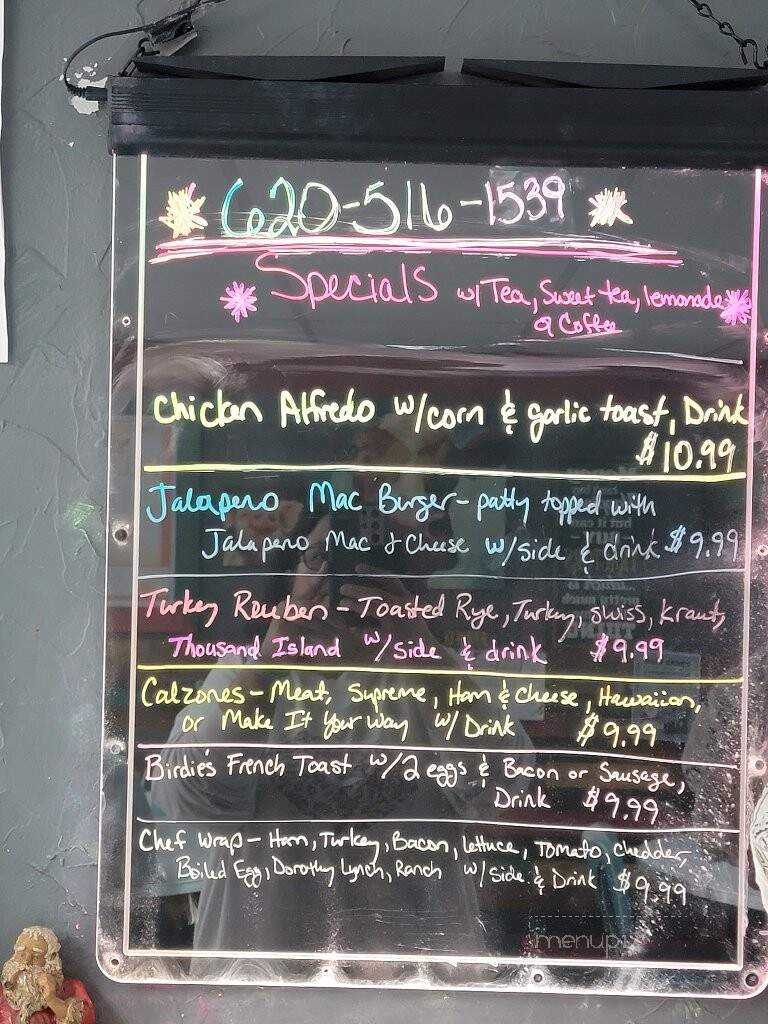 620-516-1539
Specials w/ Tea, Sweet tea, lemonade
& Coffee
Chicken Alfredo w/corn & garlic toast, Drink
$10.99
Jalapeno Mac Burger - patty topped with
Jalapeno Mac & Cheese w/side & drink $9.99
Turkey Reuben - Toasted Rye, Turkey, swiss, Kraut,
Thousand Island w/side & drink $9.99
Calzones - Meat, Supreme, Ham & cheese, Hawaiian,
or Make It Your Way w/ Drink $9.99
Birdie's French Toast w/2 eggs & Bacon or Sausage,
Drink $9.99
Chef Wrap - Ham, Turkey, Bacon, lettuce, Tomato, cheddar,
Boiled Egg, Dorothy Lynch, Ranch w/side & Drink $9.99